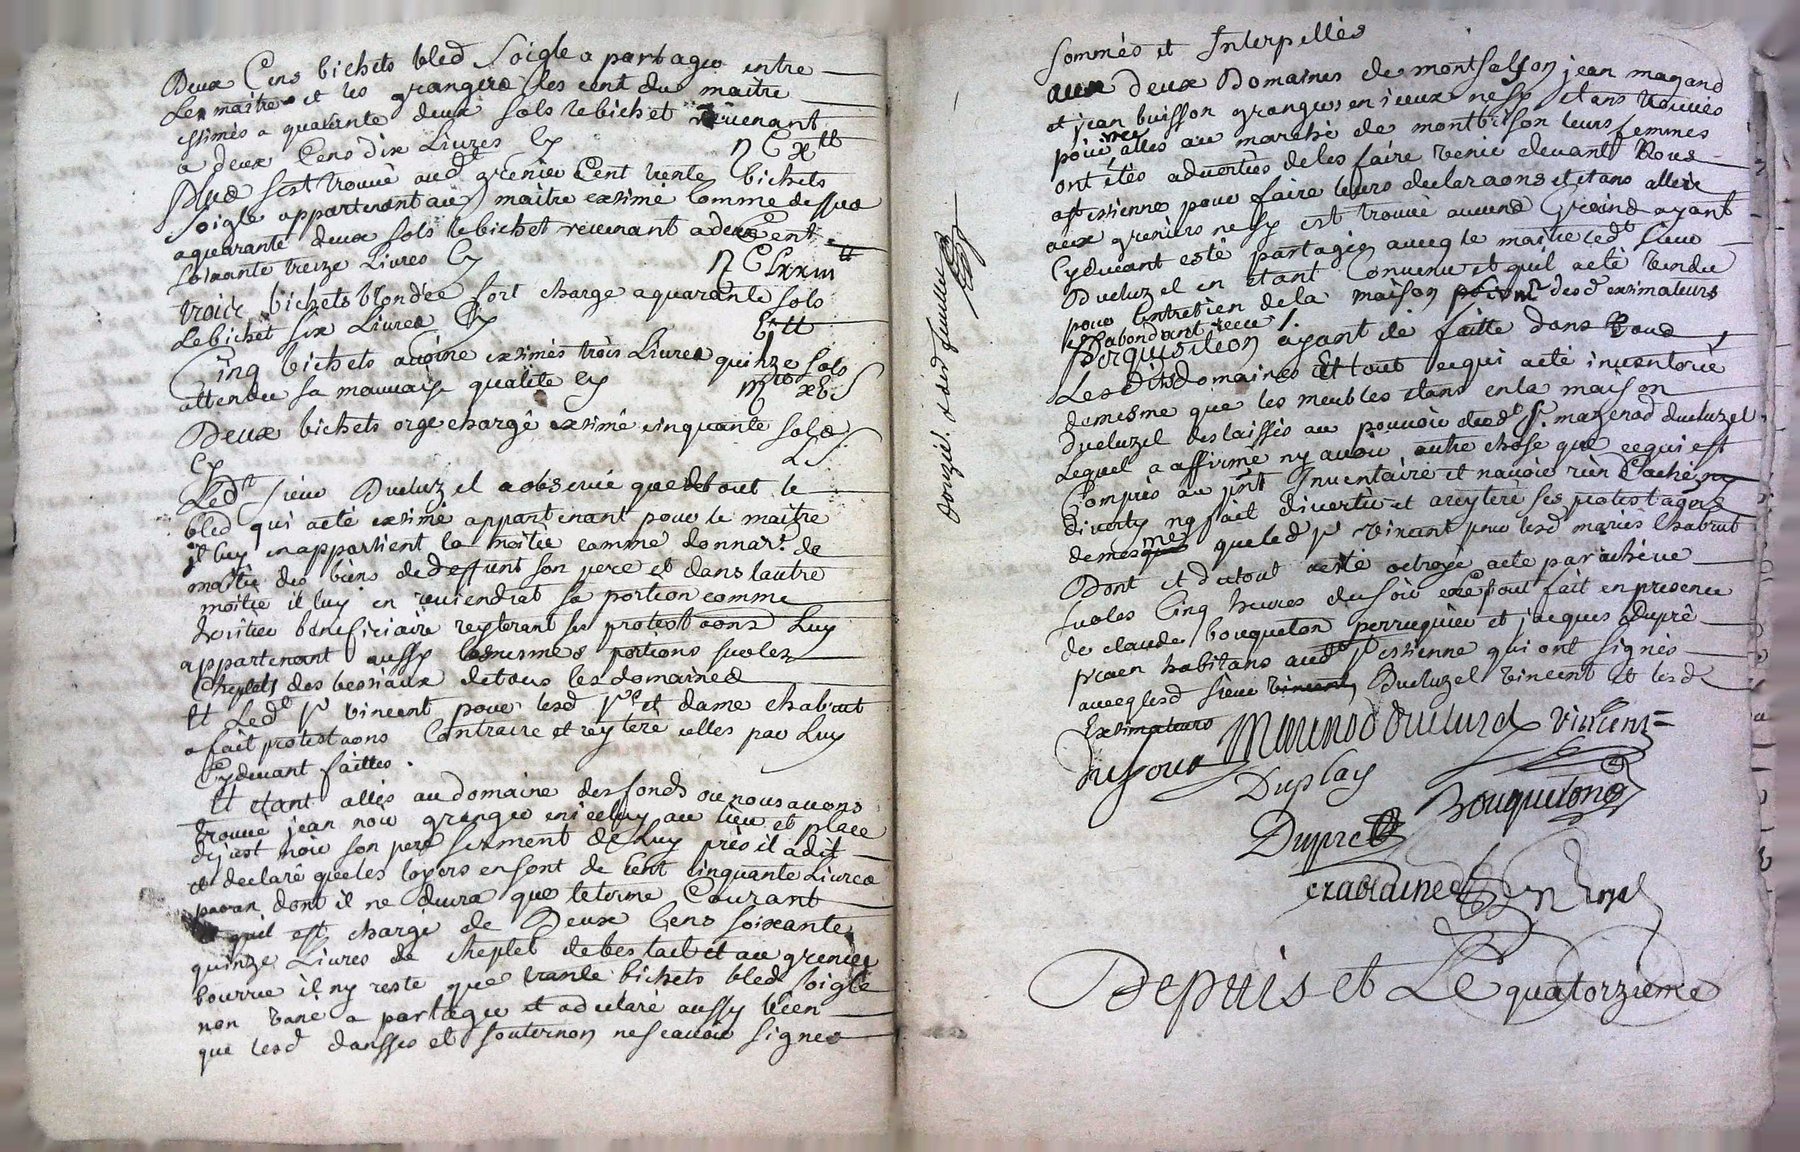 Deux Cens bichets bled Soigle a partager entre
Les maitres et les grangers les cent du maitre
estimés a quarante deux sols le bichet revenant
a deux Cens dix Livres Cy
Plus s'est trouvé aud.t grenier Cent trente bichets
Soigle appartenant au maitre extimé Comme dessus
a quarante deux sols le bichet revenant a deux Cent
soixante treize Livres Cy
trois bichets blondée fort chargé a quarante sols
Le bichet six Livres Cy
Cinq bichets avoine extimés trois Livres quinze sols
attendu sa mauvaise qualité Cy
Deux bichets orge chargé extimé cinquante sols
Cy
Led.t Sieur Ducluzel a observé que de tout le
bled qui a eté extimé appartenant pour le maitre
il luy en appartient la moitié comme donnat.e de
moitié des biens de deffunt son pere et dans l'autre
moitié il luy en reviendrat sa portion comme
heritier beneficiaire reyterant ses protestaons Luy
appartenant aussy les mesmes portions sur les
Cheplets des bestiaux de tous les domaines
Et Led.t Sr vincent pour lesd Sr et dame chabrat
a fait protestaons Contraire et reyteré celles par Luy
Cydevant faittes.
Et étant allés au domaine des fonds ou nous avons
trouvé jean noir granger en iceluy au lieu et place
de just noir son pere serment de Luy pris il a dit
et declaré que les loyers en sont de Cent Cinquante Livres
par an dont il ne devra que le terme Courant
qu'il est chargé de Deux Cens soixante
quinze Livres de cheplet de bestail et au grenier
bourrue il n'y reste que trante bichets bled soigle
non vané a partager et a declaré aussy bien
que lesd dansses et souternon ne scavoir signer
sommés et Interpellés
aux deux Domaines de montsalson jean magand
et jean buisson grangers en iceux ne sy etans trouvés
pour etre allés au marché de montbrison leurs femmes
ont étés adverties de les faire venir devant Nous
a st estienne pour faire leurs declaraons et etans allés
aux greniers ne sy est trouvé aucuns Grains ayant
Cydevant esté partagés avec le maitre led.t sieur
Ducluzel en etant Convenu et qu'il a eté vendu
pour l'entretien de la maison desd extimateurs
Perquisition ayant été faitte dans tous
Lesdits domaines Et tout ce qui a eté inventorié
de mesme que les meubles etans en la maison
Ducluzel deslaissés au pouvoir dud.t Sr. mazenod ducluzel
Lequel a affirmé ny avoir autre chose que ce qui est
Compris au p.nt Inventaire et n'avoir rien Caché ny
diverty ny fait divertir et a reyteré ses protestaons
de mesme que led Sr vincent pour lesd mariés chabrat
Dont et du tout a esté octroyé acte parachevé
sur les Cinq heures du soir le tout fait en presence
de claude bouqueton perruquier et jacques Dupré
p'caen habitans aud.t St estienne qui ont signés
avec lesd sieur Ducluzel vincent et lesd
Extimateurs
Mazenod ducluzel vincent
Duplay
Bouqueton
Dupré
Depuis et Le quatorzieme